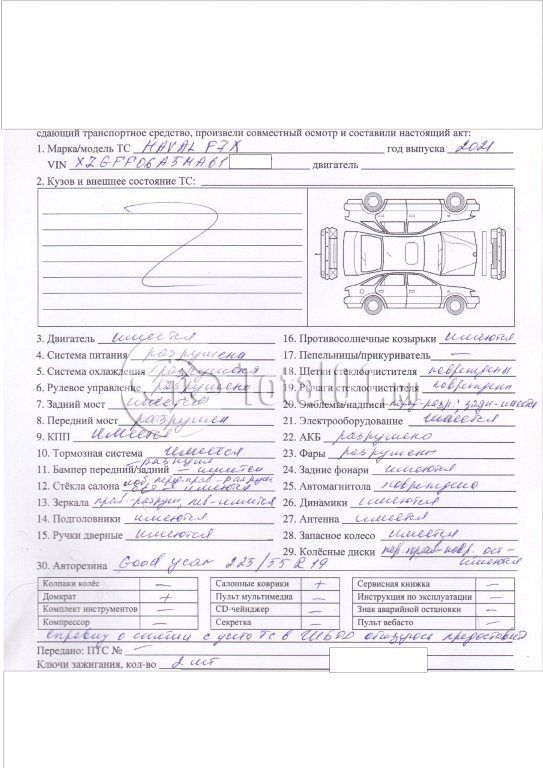 сдающий транспортное средство, произвели совместный осмотр и составили настоящий акт:
1. Марка/модель ТС HAVAL F7X год выпуска 2021
VIN XZGFF06A5MA61 двигатель
2. Кузов и внешнее состояние ТС:
3. Двигатель имеется
4. Система питания разрушена
5. Система охлаждения разрушена
6. Рулевое управление разрушено
7. Задний мост имеется
8. Передний мост разрушен
9. КПП имеется
10. Тормозная система имеется
11. Бампер передний/задний – разрушен – имеется
12. Стёкла салона лоб, перед. прав - разруш имеются
13. Зеркала прав-разруш, лев-имеется
14. Подголовники имеются
15. Ручки дверные имеются
16. Противосолнечные козырьки имеются
17. Пепельницы/прикуриватель —
18. Щетки стеклоочистителя повреждены
19. Рычаги стеклоочистителя повреждены
20. Эмблемы/надписи разр; задн-имеется
21. Электрооборудование имеется
22. АКБ разрушено
23. Фары разрушены
24. Задние фонари имеются
25. Автомагнитола повреждена
26. Динамики имеются
27. Антенна имеется
28. Запасное колесо имеется
29. Колёсные диски пер. прав повр, ост - имеются
30. Авторезина Good year 225/55 R 19
Колпаки колёс — Салонные коврики + Сервисная книжка —
Домкрат + Пульт мультимедиа — Инструкция по эксплуатации —
Комплект инструментов — CD-чейнджер — Знак аварийной остановки —
Компрессор — Секретка — Пульт вебасто —
справку о снятии с учета ТС в ГИБДД обязуюсь предоставить
Передано: ПТС № —
Ключи зажигания, кол-во 2 шт